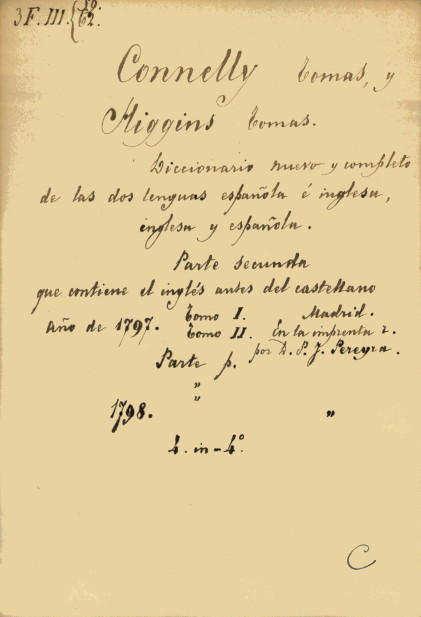 3 F. III.
Connelly Tomas, y
Higgins Tomas.
Diccionario nuevo y completo
de las dos lenguas española é inglesa,
inglesa y española.
Parte secunda
que contiene el inglés antes del castellano
Año de 1797. Tomo I. Madrid.
Tomo II. En la imprenta r.
por D. P. J. Pereyra.
Parte p.
"
"
1798. "
4. in-4°.
C